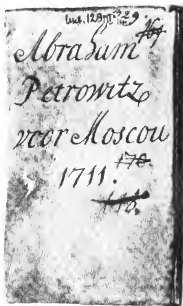 Abraham
Petrowitz
voor Moscou
178.
1711.